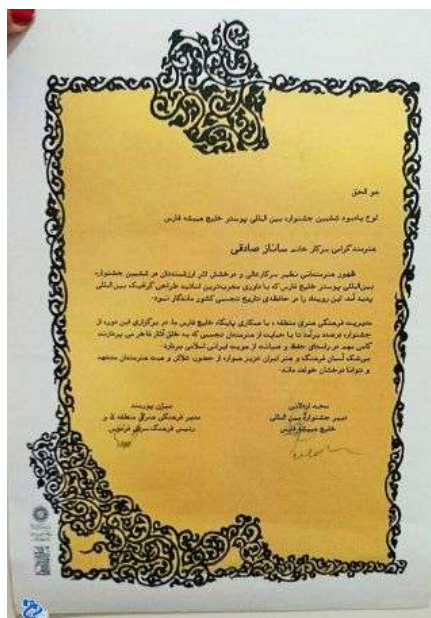 هو الحق
لوح یادبود ششمین جشنواره بین المللی پوستر خلیج همیشه فارس
هنرمند گرامی سرکار خانم ساناز صادقی
ظهور هنرمندانی نظیر سرکارعالی و درخشش اثر ارزشمندتان در ششمین جشنواره
بین‌المللی پوستر خلیج فارس که با داوری مجرب‌ترین اساتید طراحی گرافیک بین المللی
پدید آمد، این رویداد را در حافظه‌ی تاریخ تجسمی کشور ماندگار نمود.
مدیریت فرهنگی هنری منطقه با همکاری پایگاه خلیج فارس ما، در برگزاری این دوره از
جشنواره درصدد برآمد تا با حمایت از هنرمندان تجسمی که به خلق آثار فاخر می پردازند،
گامی مهم در راستای حفظ و صیانت از هویت ایرانی اسلامی بردارد.
بی‌شک آسمان فرهنگ و هنر ایران عزیز همواره از حضور، تلاش و همت هنرمندان متعهد
و توانا درخشان خواهد ماند.
دبیر جشنواره بین المللی
خلیج همیشه فارس
مدیر فرهنگی هنری منطقه و
رئیس فرهنگسرای فردوس